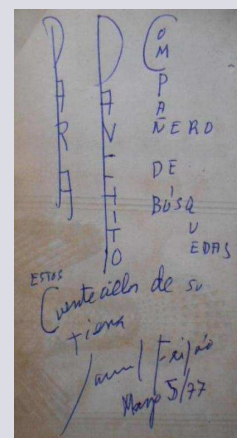 PARA
DANIELITO
COMPAÑERO
DE
BÚSQUEDAS
ESTOS
Cuentecillos de su
tierra
Mayo 5/77